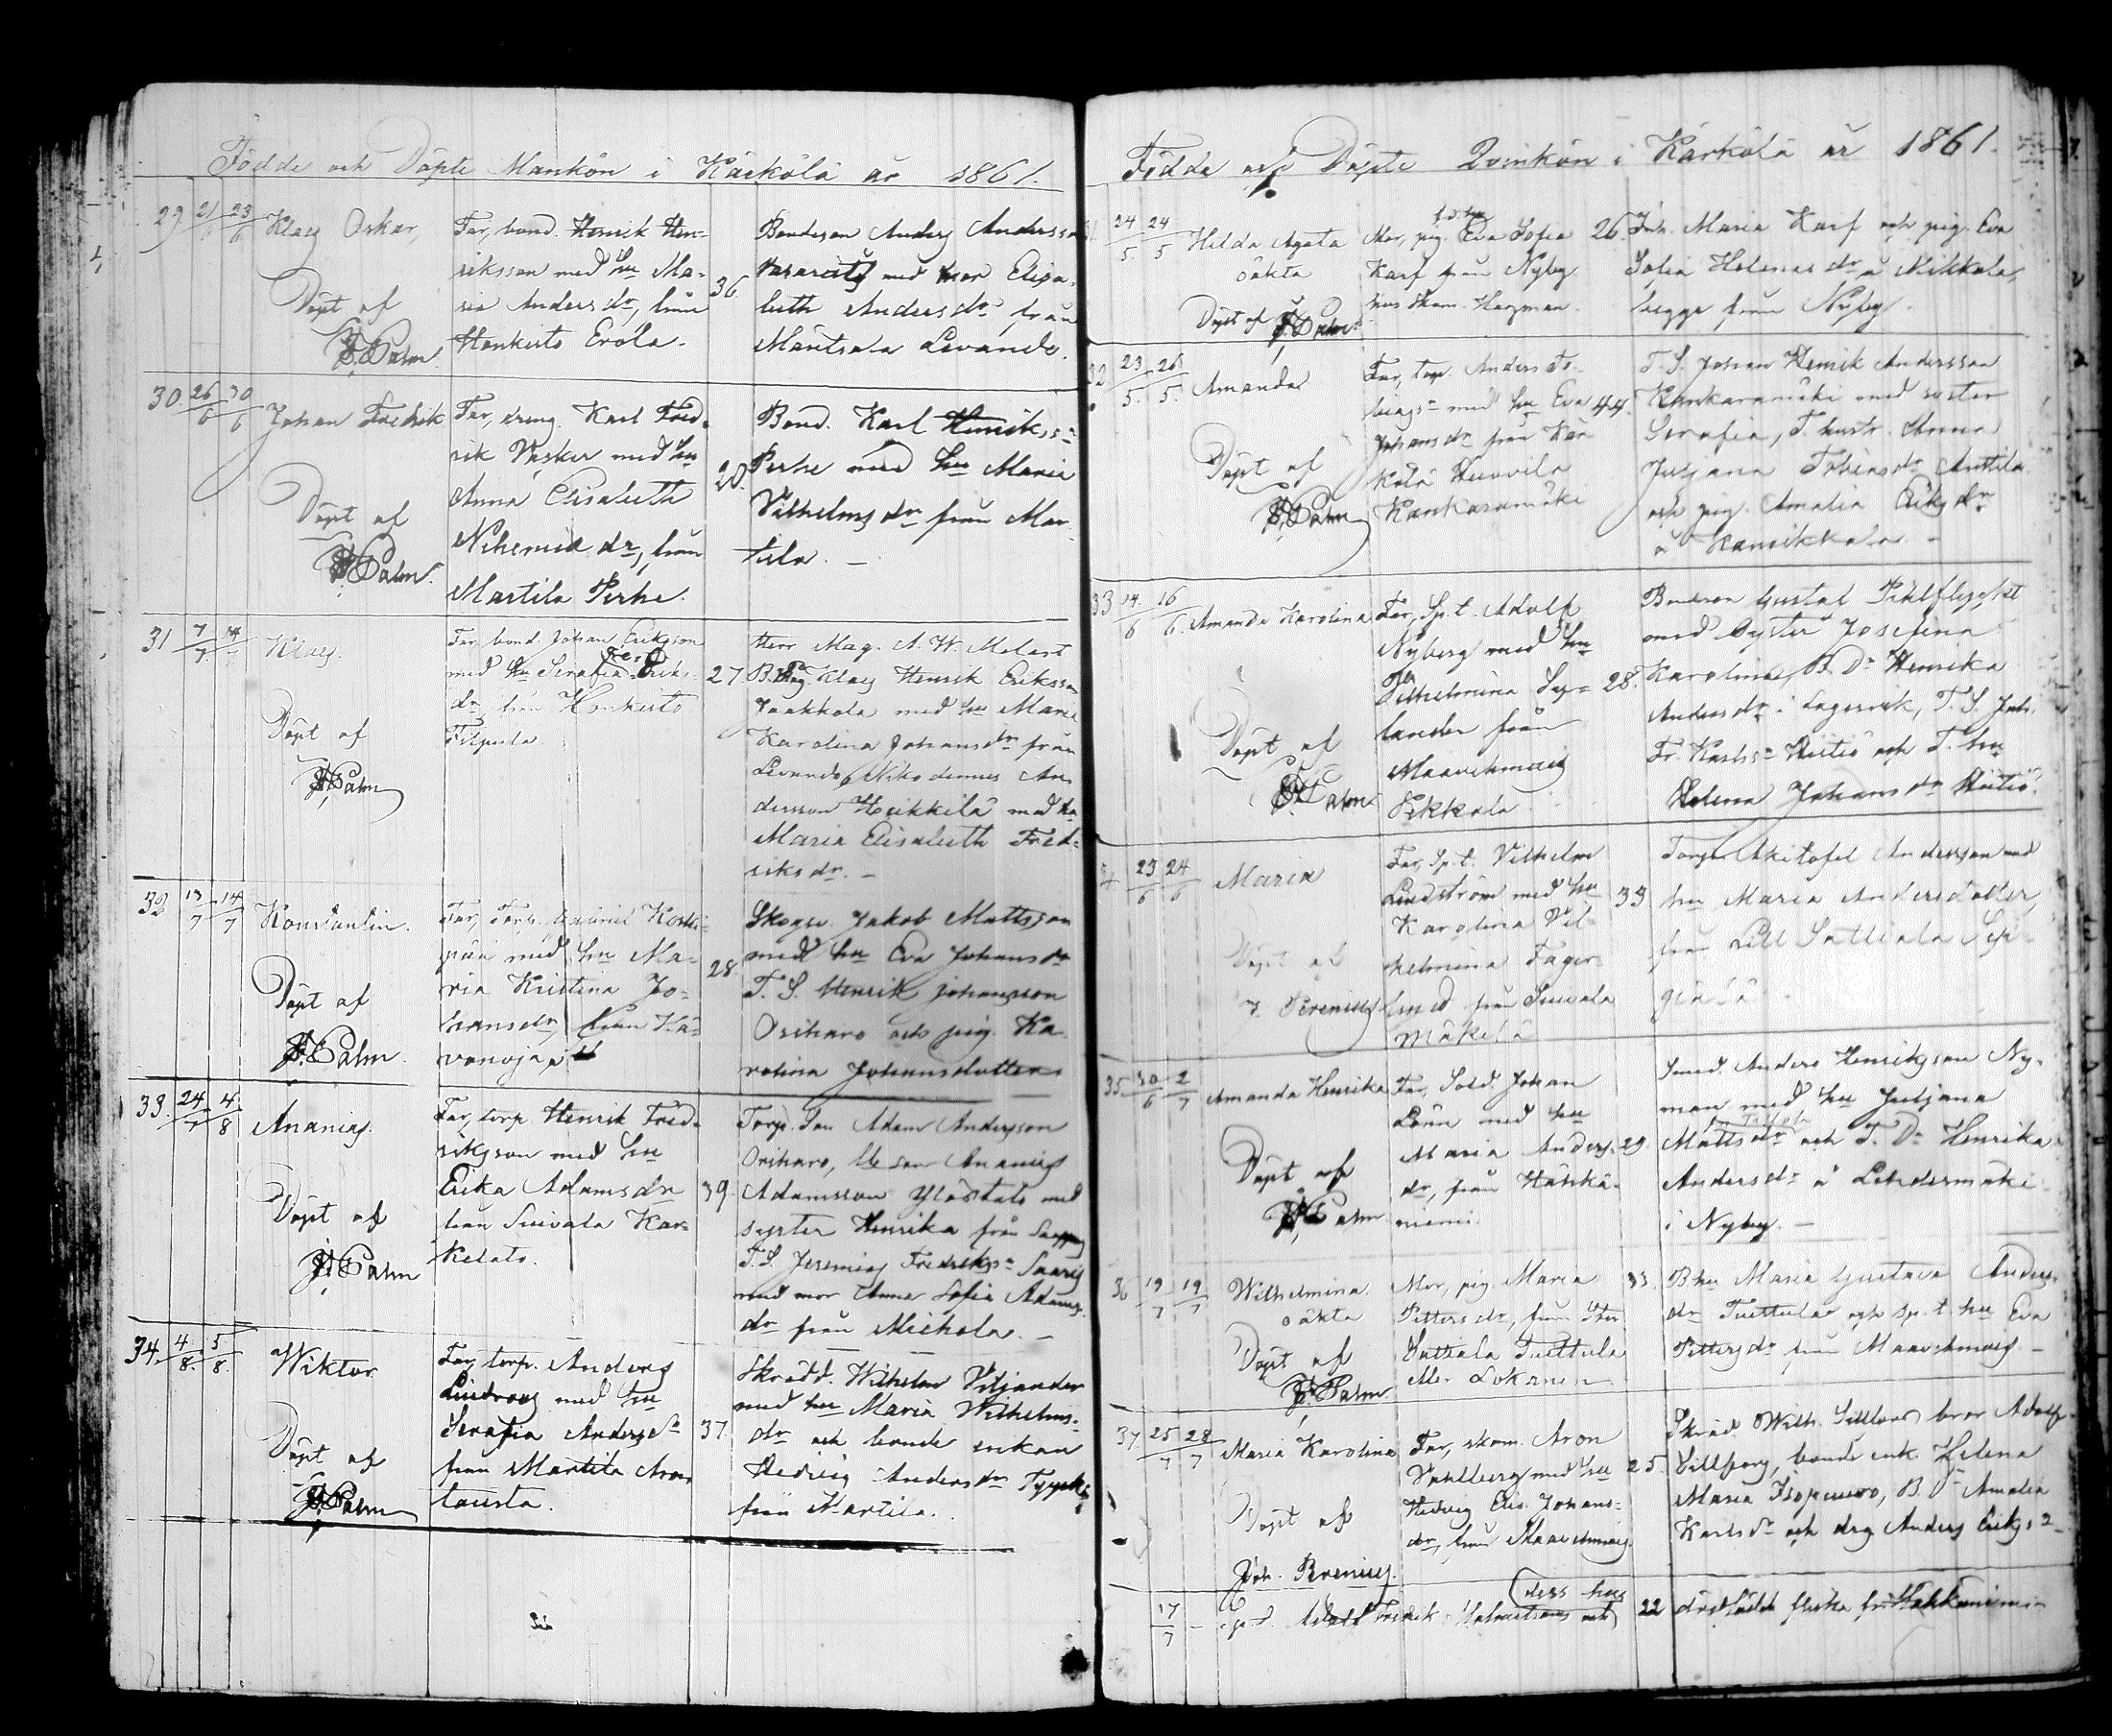 Födde och Döpte Mankön i Kärkölä år 1861.
29 21/6 23/6 Klas Oskar,
Döpt af
Palm.
Far, bond. Henrik Hen-
riksson med hu Ma-
ria Andersdr, från
Hankerto Eröla.
36
Bondeson Anders Andersson
med mor Elisa-
beth Andersdr, från
Mäntsälä Levando.
30. 26/6 30/6 Johan Fredrik
Döpt af
Palm.
Far, dreng. Karl Fred-
rik Vasker med hu
Anna Elisabeth
Nehemiadr, från
Martila Perhe.
20.
Bond. Karl Henrikss:
Perhe med hu Maria
Vilhelmsdr från Mar-
tila. —
31 7/7 14/7 Klas.
Döpt af
Palm
Far, bond. Johan Eriksson
med hu Serafia Eriks-
dr, från Hankerto
Filpula.
27.
Herr Mag. A. W. Melart
Klas Henrik Eriksson
Jaakkola med hu Maria
Karolina Johansdr från
Levando, Nikodemus An-
dersson Heikkilä med hu
Maria Elisabeth Fred-
riksdr. —
32 13/7 14/7 Konstantin.
Döpt af
Palm.
Far, Torp. Gabriel Koski-
pää med hu Ma-
ria Kristina Jo-
hansdr, från Kä-
vanoja.
28
Skogv. Jakob Mattsson
med hu Eva Johansdr
T. S. Henrik Johansson
Oriharo och pig. Ka-
rolina Johansdotter
33. 24/7 4/8 Ananias.
Döpt af
Palm
Far, torp. Henrik Fred-
riksson med hu
Erika Adamsdr
från Suivala Kar-
kelato.
39.
Torp. Son Adam Andersson
Oriharo, son Ananias
Adamsson Ylöstalo med
syster Henrika från
T. S. Jeremias Fredrikss: Saaris
med mor Anna Sofia Adams-
dr från Mickola. —
34. 4/8. 5/8. Wiktor
Döpt af
Palm
Far, torp. Anders
Lindroos med hu
Serafia Andersdr
från Martila Aron-
tausta.
37.
Skrädd. Wilhelm Viljander
med hu Maria Wilhelms-
dr och bonde enkan
Hedvig Andersdr
från Martila.
Födde och Döpte Qvinkön i Kärkölä år 1861.
24/5. 24/5 Hilda Agata
oäkta
Döpt af Palm.
Mor, pig. Eva Sofia
Karf från Nyby
hos skom. Hagman.
26.
Inh. Maria Karf och pig. Eva
Sofia Helenas dr å Mikkola,
begge från Nyby.
32 23/5. 26/5. Amanda
Döpt af
Palm
Far, torp. Anders To-
biass: med hu Eva
Johansdr från Kär-
kölä Huovila
Kankaramäki
44.
T. S. Johan Henrik Andersson
Kankaramäki med syster
Serafia, T. hustr. Anna
Juljana Tobiasdr Anttila
och pig. Amalia Eriksdr
å Kansikkala. —
33 14/6 16/6. Amanda Karolina
Döpt af
Palm.
Far, Sp.t. Adolf
Nyberg med hu
Vilhelmina Se-
lander från
Maavehmais
Pekkala
28.
Bondeson Gustaf
med Syster Josefina
Karolina, B. Dr Henrika
Andersdr i Lagervik, T. S. Joh.
Fr. Karlss: Hietio och T. hu
Helena Johansdr Hietio.
23/6 24/6 Maria
Döpt af
J. Perenius
Far, Sp.t. Vilhelm
Lindström med hu
Karolina Vil-
helmina Fager-
lund från Suivala
Mäkelä
33
Torpar Akitofel Andersson med
hu Maria Andersdotter,
från Lill Sattiala Sep-
35 30/6 2/7 Amanda Henrika
Döpt af
Palm
Far, Sold. Johan
Lönn med hu
Maria Anders-
dr, från Hähkä-
niemi.
29.
Smed. Anders Henriksson Ny-
man med hu Juljana
Mattsdr och T. Dr Henrika
Andersdr å Lehdermäki
i Nyby. —
36 19/7 19/7 Wilhelmina.
oäkta
Döpt af
Palm.
Mor, pig. Maria
Pettersdr, från Stor
Sattiala Tuettula
Eller Lokanen
33.
Bhu Maria Gustava Anders-
dr Tuettula och sp.t. hu Eva
Pettersdr från Maavehmais. —
37 25/7 28/7 Maria Karolina
Döpt af
Joh. Perenius.
Far, skom. Aron
Vahlberg med hu
Hedvig Elis. Johans-
dr, från Maavehmais.
25.
Skräd. Wilh. bror Adolf
Sillfors, bonde enk. Helena
Maria Isopuuro, B. Dr Amalia
Karlsdr och drg Anders Erikss:
17/7 — Fredrik Malmström och dess hus 22 dödfödde flicka fr. Hähkäniemi